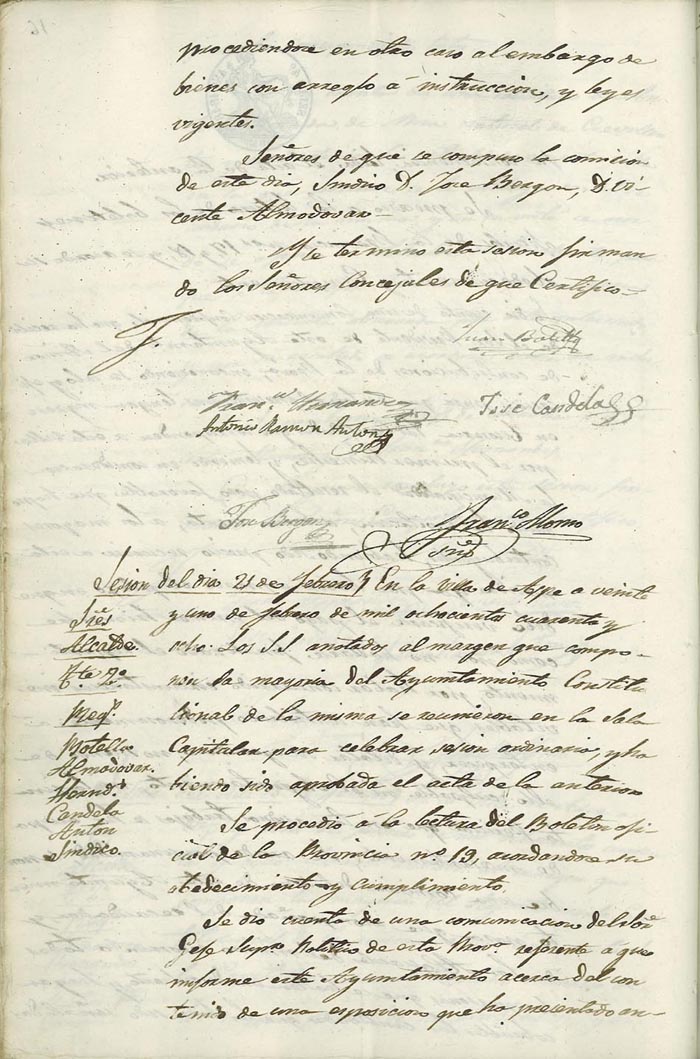 procediendose en otro caso al embargo de
bienes con arreglo á instruccion, y leyes
vigentes.
Señores de que se compuso la comicion
de este dia, Sindico D. Jose Bergon, D. Vi-
cente Almodovar
Y se termino esta sesion firman
do los Señores Concejales de que Certifico
Juan Botella
Franco Hernandez
José Candela
Antonio Ramon Anton
Jose Bergon
Franco Alonso
Srio
Sesion del dia 21 de Febrero
En la villa de Aspe a veinte
y uno de febrero de mil ochocientos cuarenta y
ocho: Los S.S anotados al margen que compo-
nen la mayoria del Ayuntamiento Constitu
cional de la misma se reunieron en la Sala
Capitular para celebrar sesion ordinaria, y ha
biendo sido aprobada el acta de la anterior
Sres
Alcalde
Tte 2o
Reqr
Botella
Almodovar.
Hernds
Candela
Anton
Sindico.
Se procedió á la lectura del Boletin ofi
cial de la Provincia no 19, acordandose su
obedecimiento y cumplimiento,
Se dio cuenta de una comunicacion del Sor
Gefe Supr Politico de esta Prova referente a que
informe este Ayuntamiento acerca del con
tenido de una esposicion que ha presentado an-